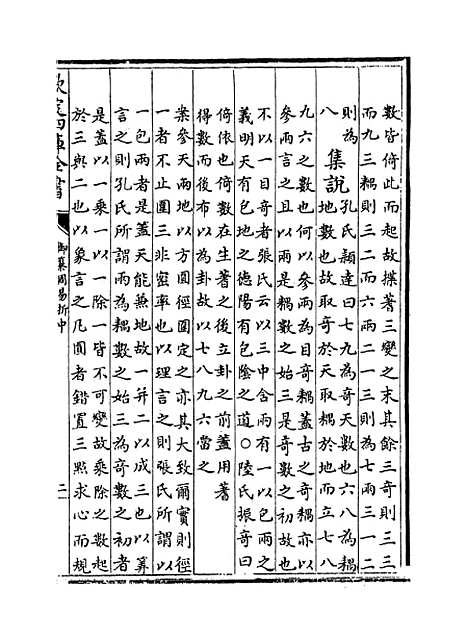 數皆倚此而起故揲蓍三變之末其餘三奇則三三
而九三耦則三二而六兩二一三則為七兩三一二
則為八
集說
孔氏穎達曰七九為奇天數也六八為耦
地數也故取奇於天取耦於地而立七八
九六之數也何以參兩為目奇耦蓋古之奇耦亦以
參兩言之且以兩是耦數之始三是奇數之初故也
不以一目奇者張氏云以三中含兩有一以包兩之
義明天有包地之德陽有包陰之道○陸氏振奇曰
倚依也倚數在生蓍之後立卦之前蓋用蓍
得數而後布以為卦故以七八九六當之
案參天兩地以方圓徑圍定之亦其大致爾實則徑
一者不止圍三非密率也以理言之則張氏所謂以
一包兩者是蓋天能兼地故一并二以成三也以算
言之則孔氏所謂兩為耦數之始三為奇數之初者
是蓋以一乘一以一除一皆不可變故乘除之數起
於三與二也以象言之凡圓者錯置三點求心而規
欽定四庫全書
御纂周易折中
二